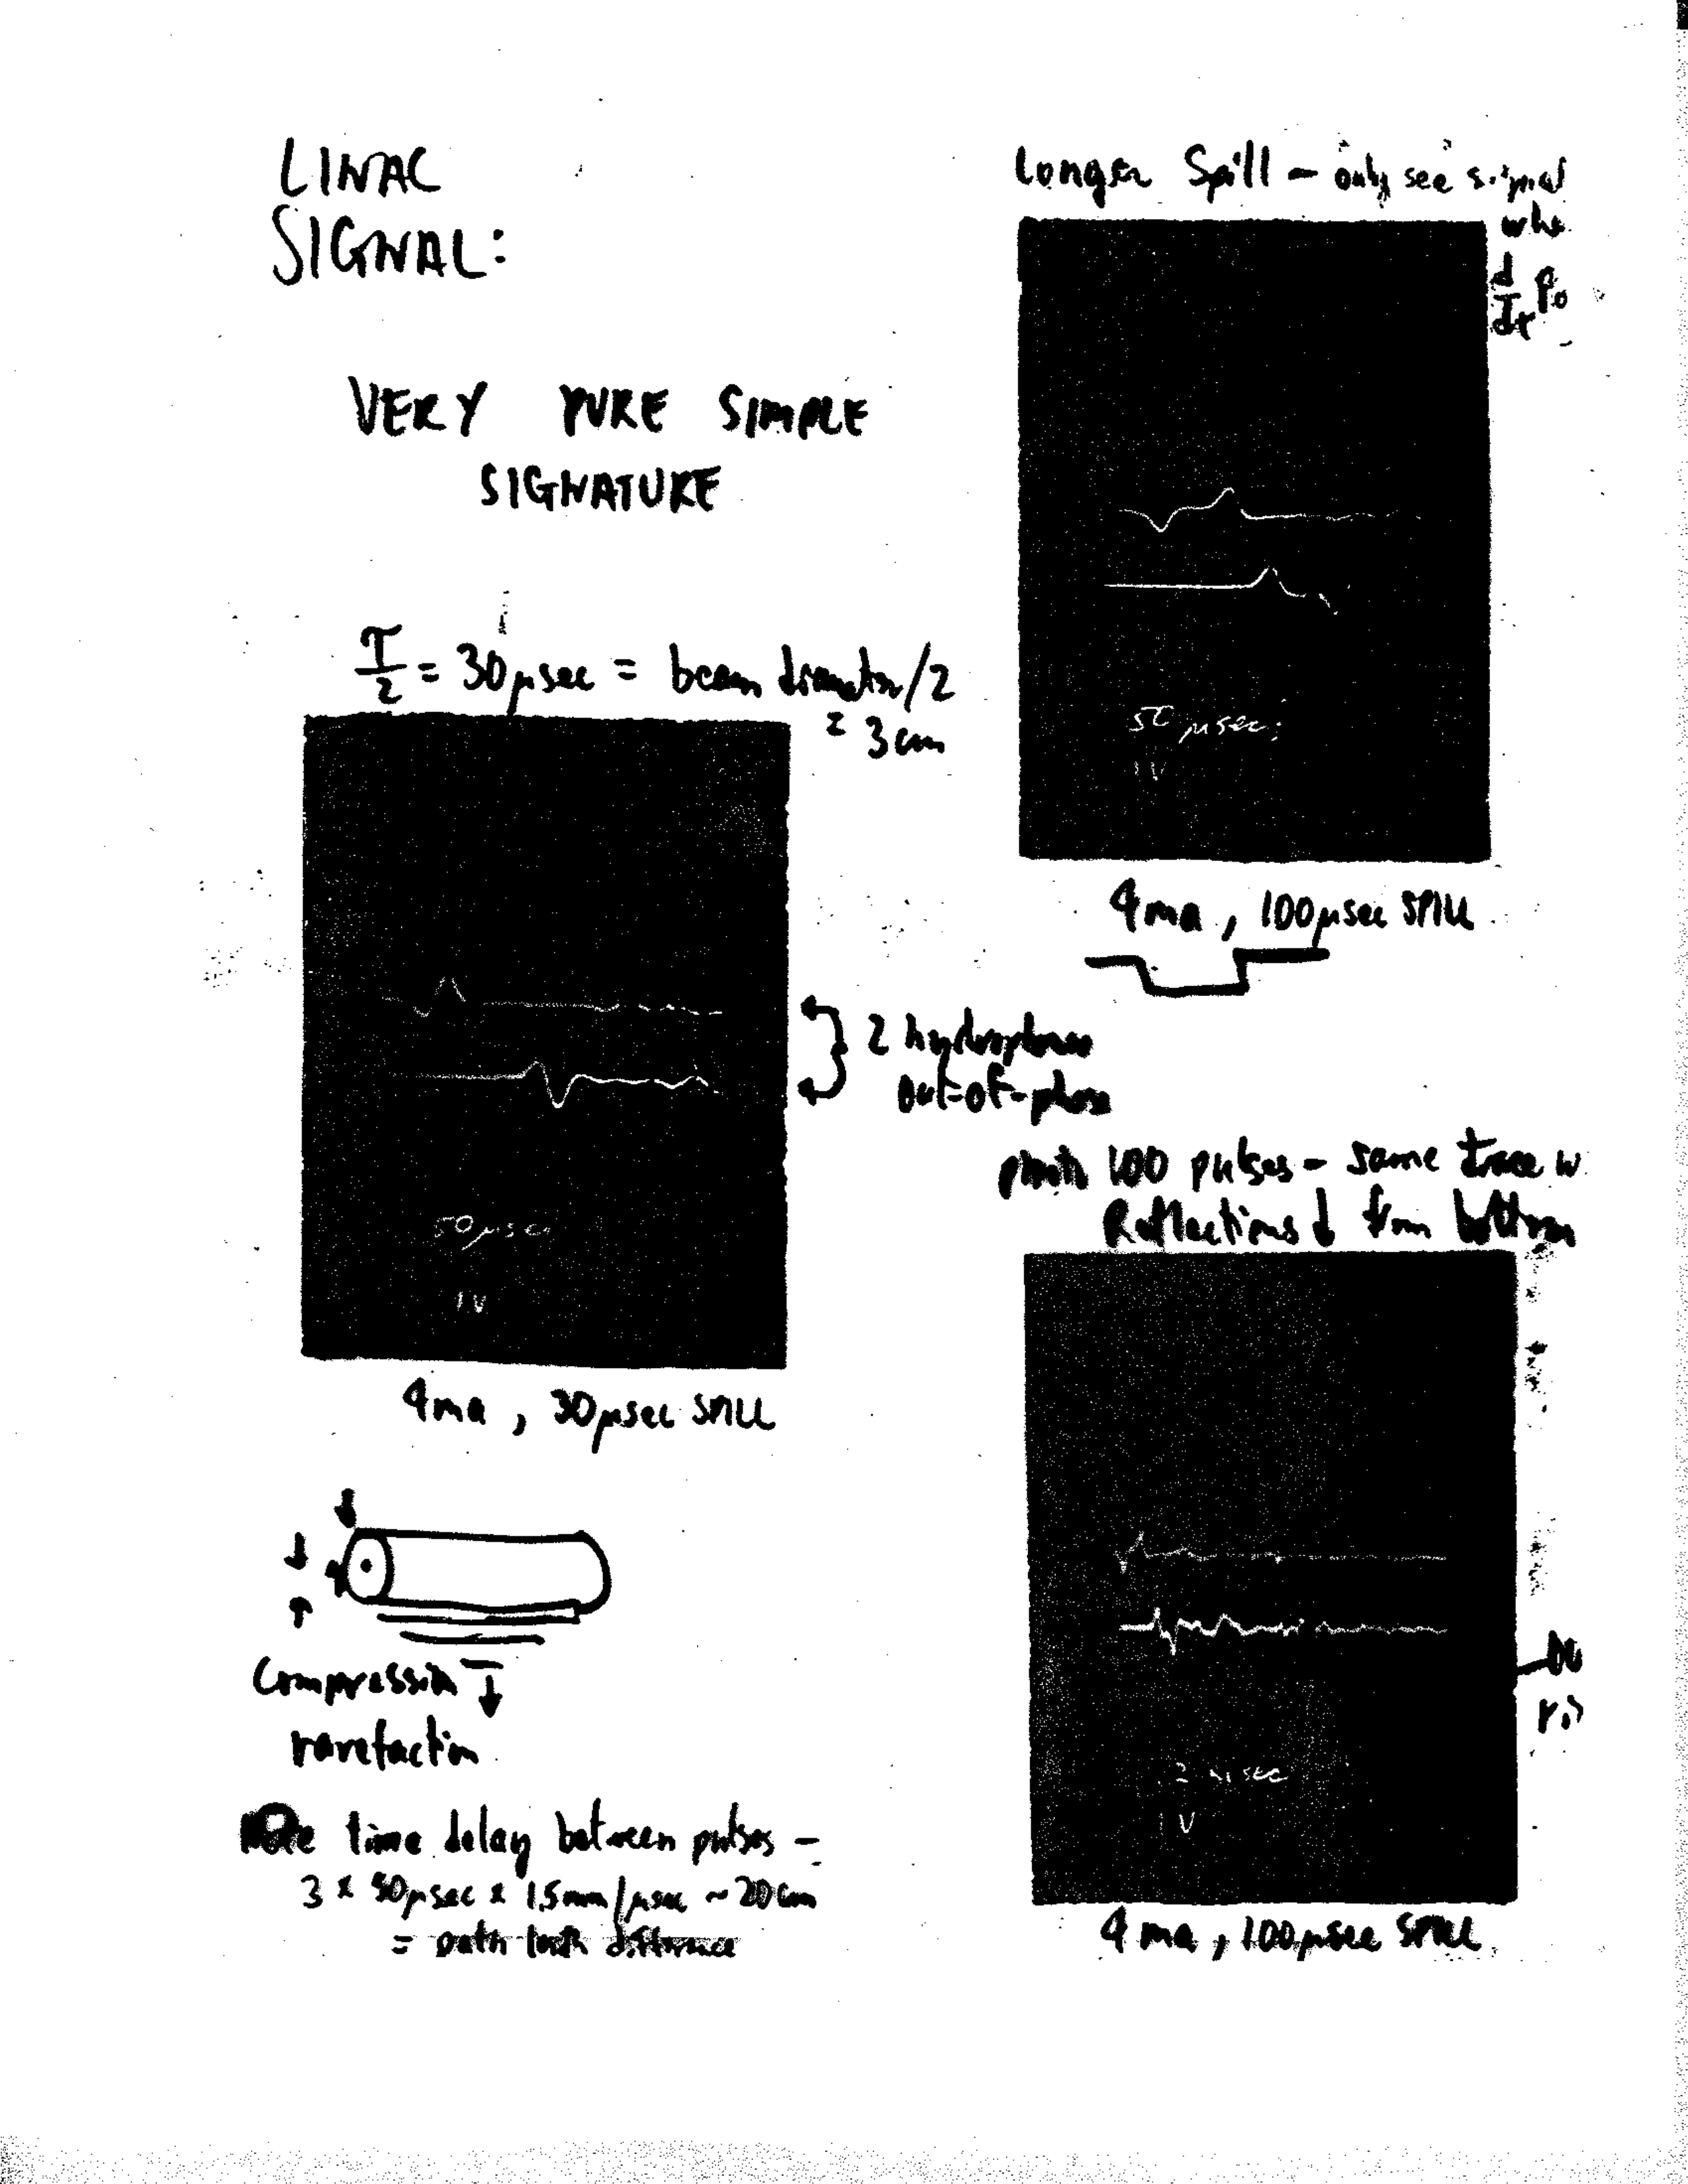 LINAC
SIGNAL:
VERY PURE SIMPLE
SIGNATURE
T/2 = 30 µsec = beam diameter/2
= 3 cm
50 µsec
1 V
2 hydrophones
out-of-phase
4 ma, 30 µsec SPILL
Compression
rarefaction
Note time delay between pulses –
3 x 50 µsec x 1.5 mm/µsec ~ 20 cm
= path length difference
Longer Spill – only see signal
d/dt
50 µsec
1 V
4 ma, 100 µsec SPILL
100 pulses – same trace w
Reflections from bottom
2 msec
1 V
4 ma, 100 µsec SPILL